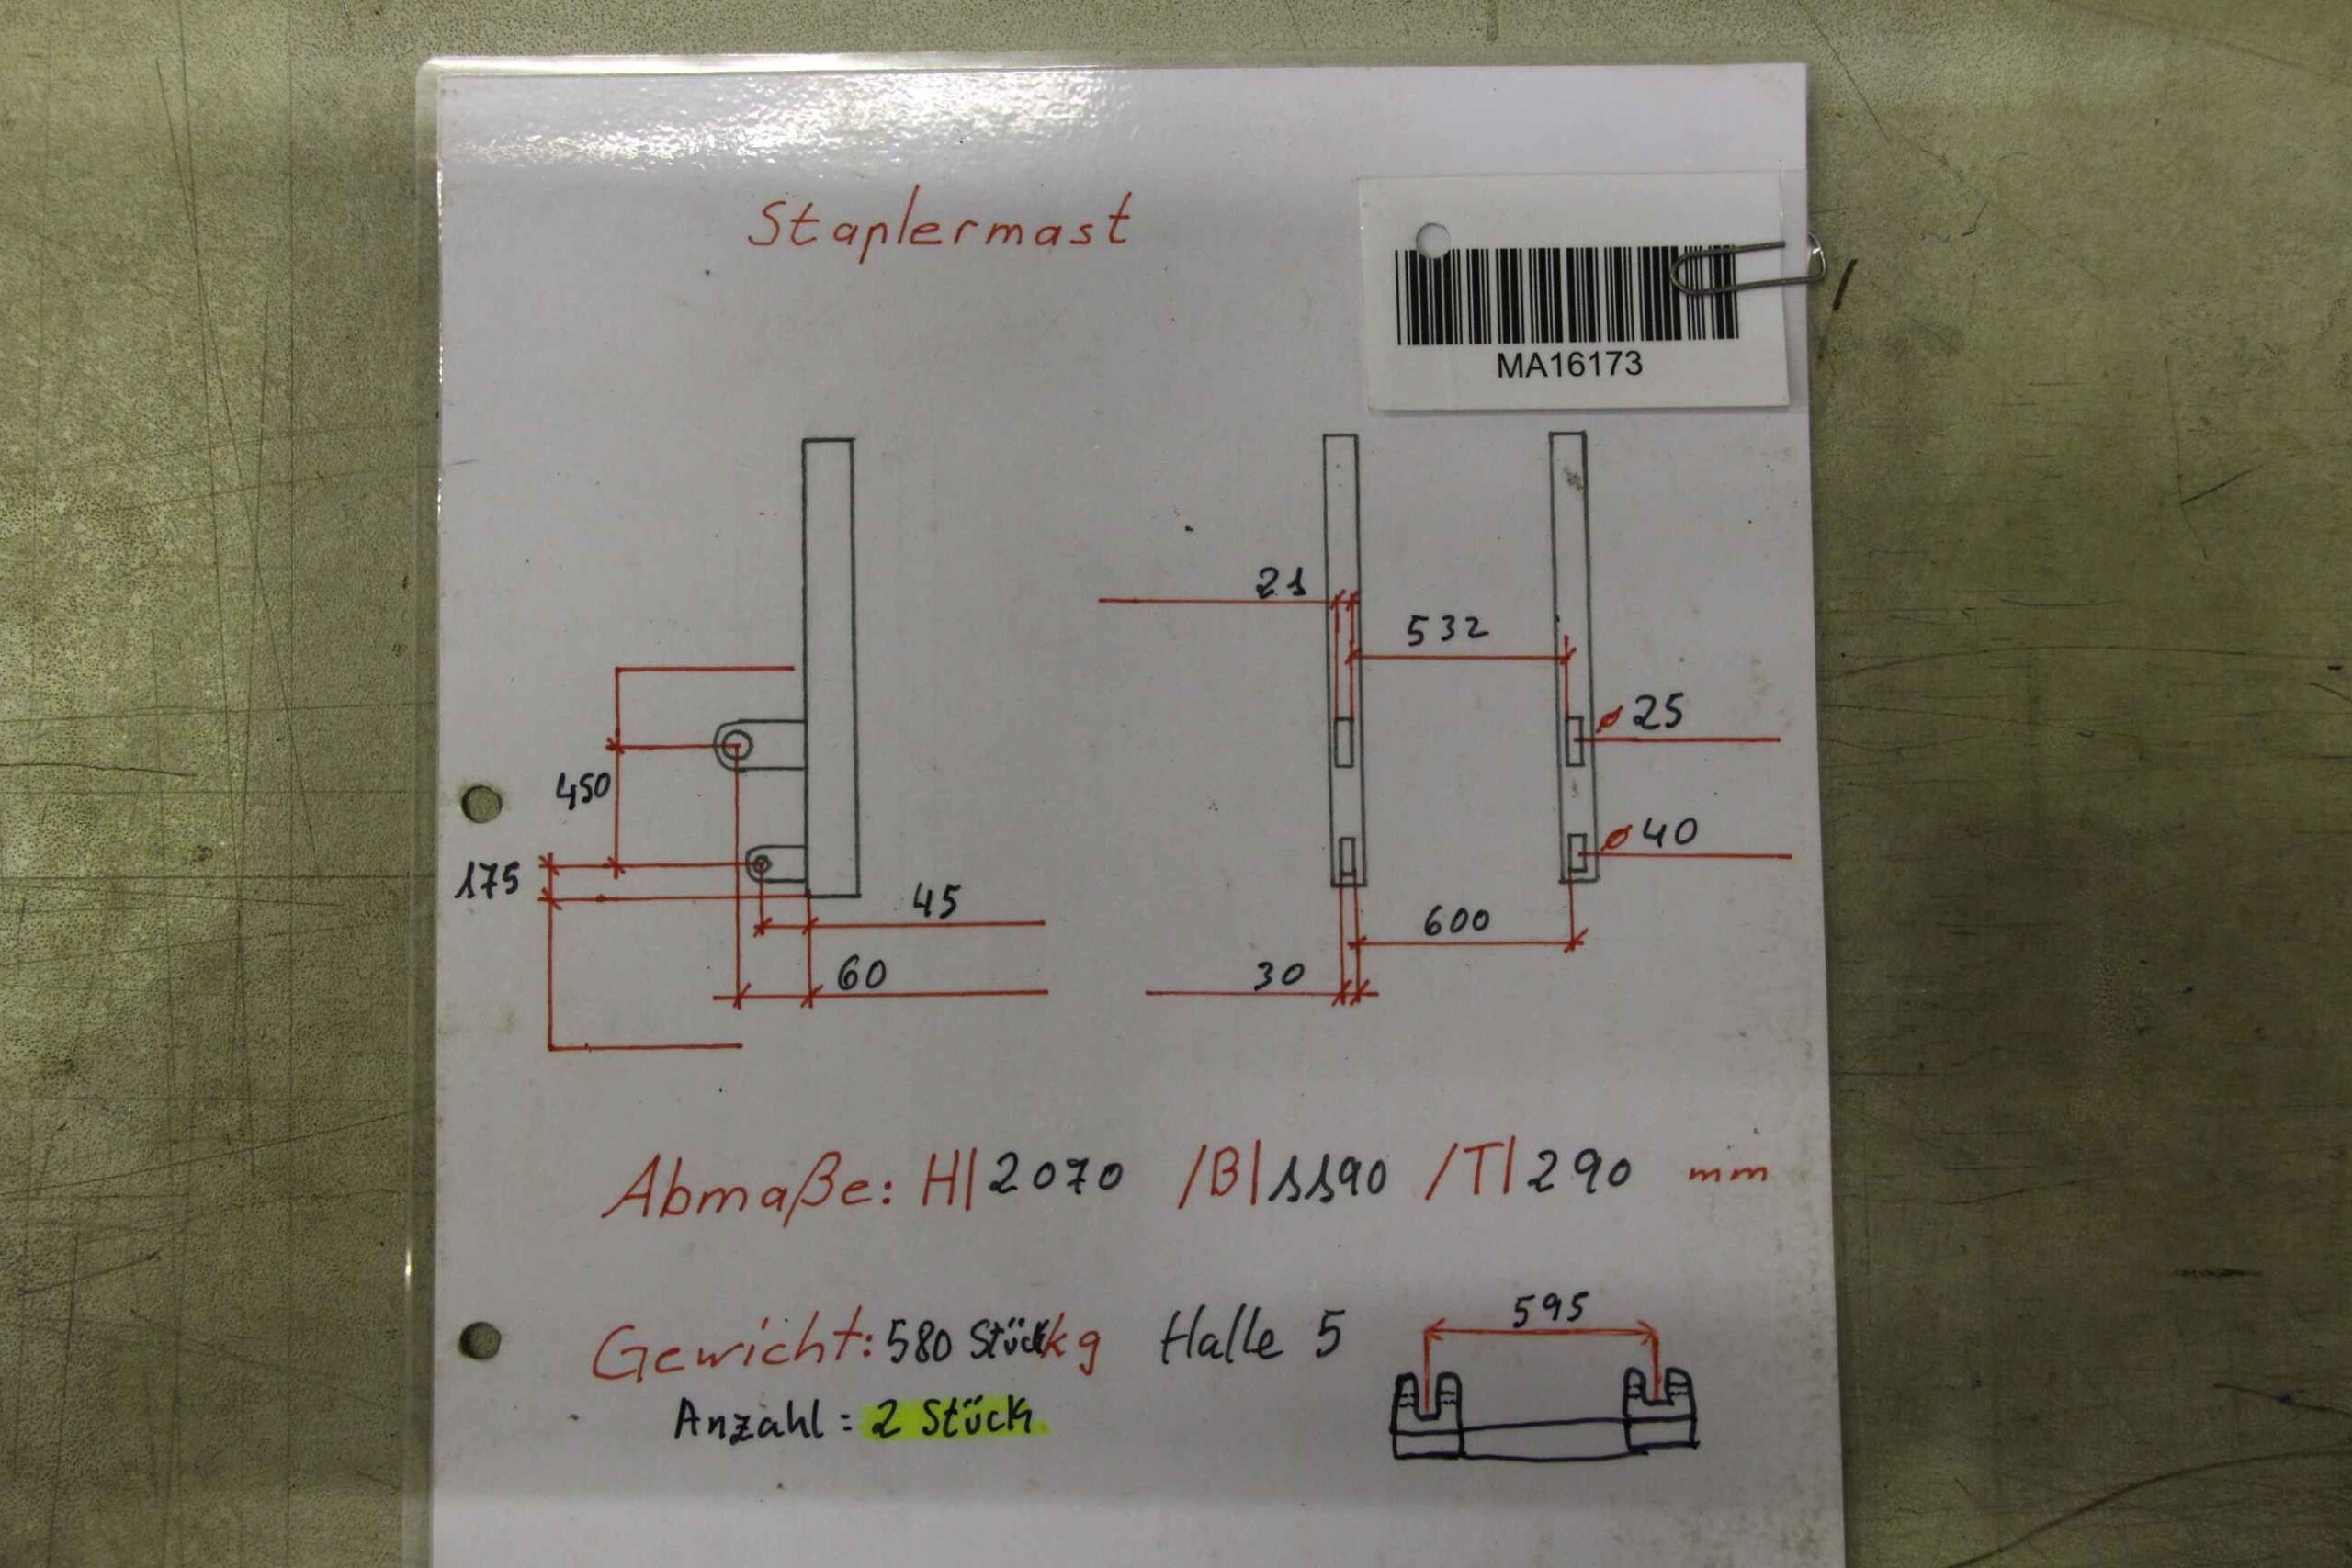 Staplermast
MA16173
21
532
ø 25
450
ø 40
175
45
600
60
30
Abmaße: H| 2070 /B| 1190 /T| 290 mm
595
Gewicht: 580 Stück kg Halle 5
Anzahl = 2 Stück